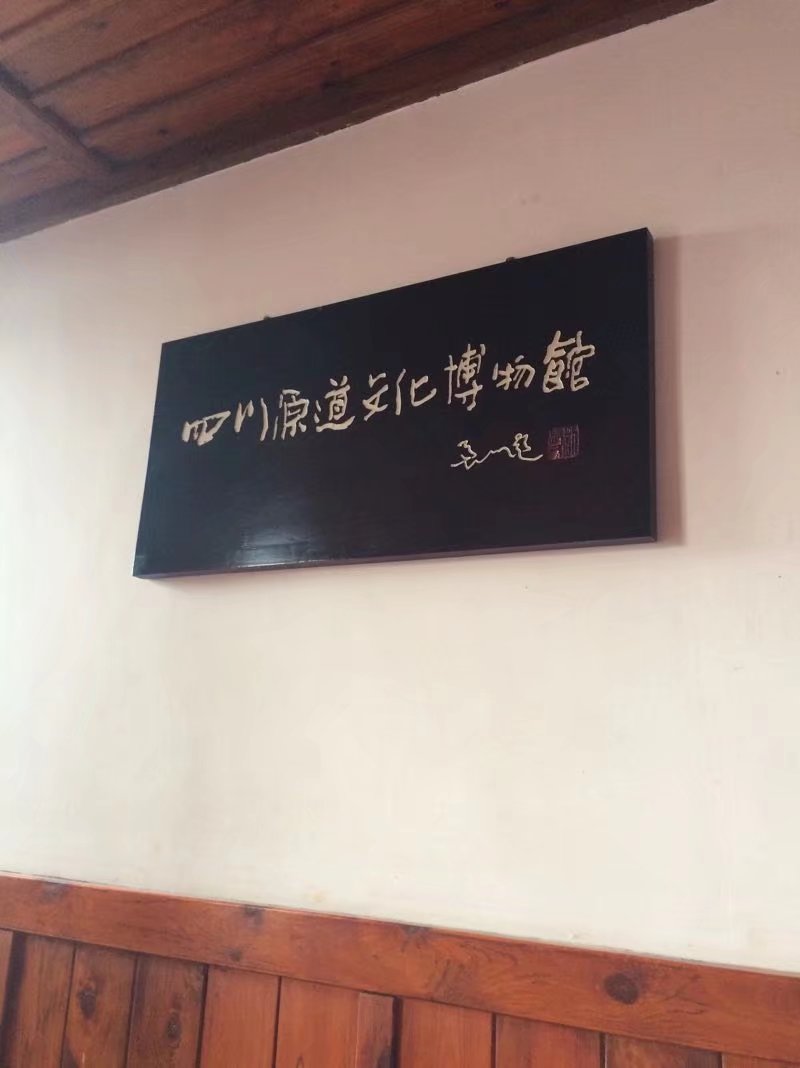 四川原道文化博物館